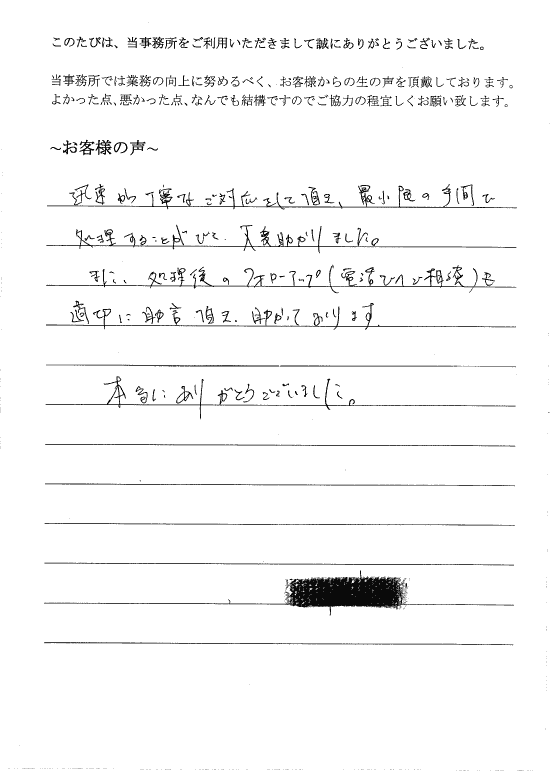 このたびは、当事務所をご利用いただきまして誠にありがとうございました。
当事務所では業務の向上に努めるべく、お客様からの生の声を頂戴しております。
よかった点、悪かった点、なんでも結構ですのでご協力の程宜しくお願い致します。
~お客様の声~
迅速かつ丁寧なご対応をして頂き、最小限の手間で
処理することができて、大変助かりました。
また、処理後のフォローアップ(電話での相談)も
適切に助言頂き、助かっております。
本当にありがとうございました。